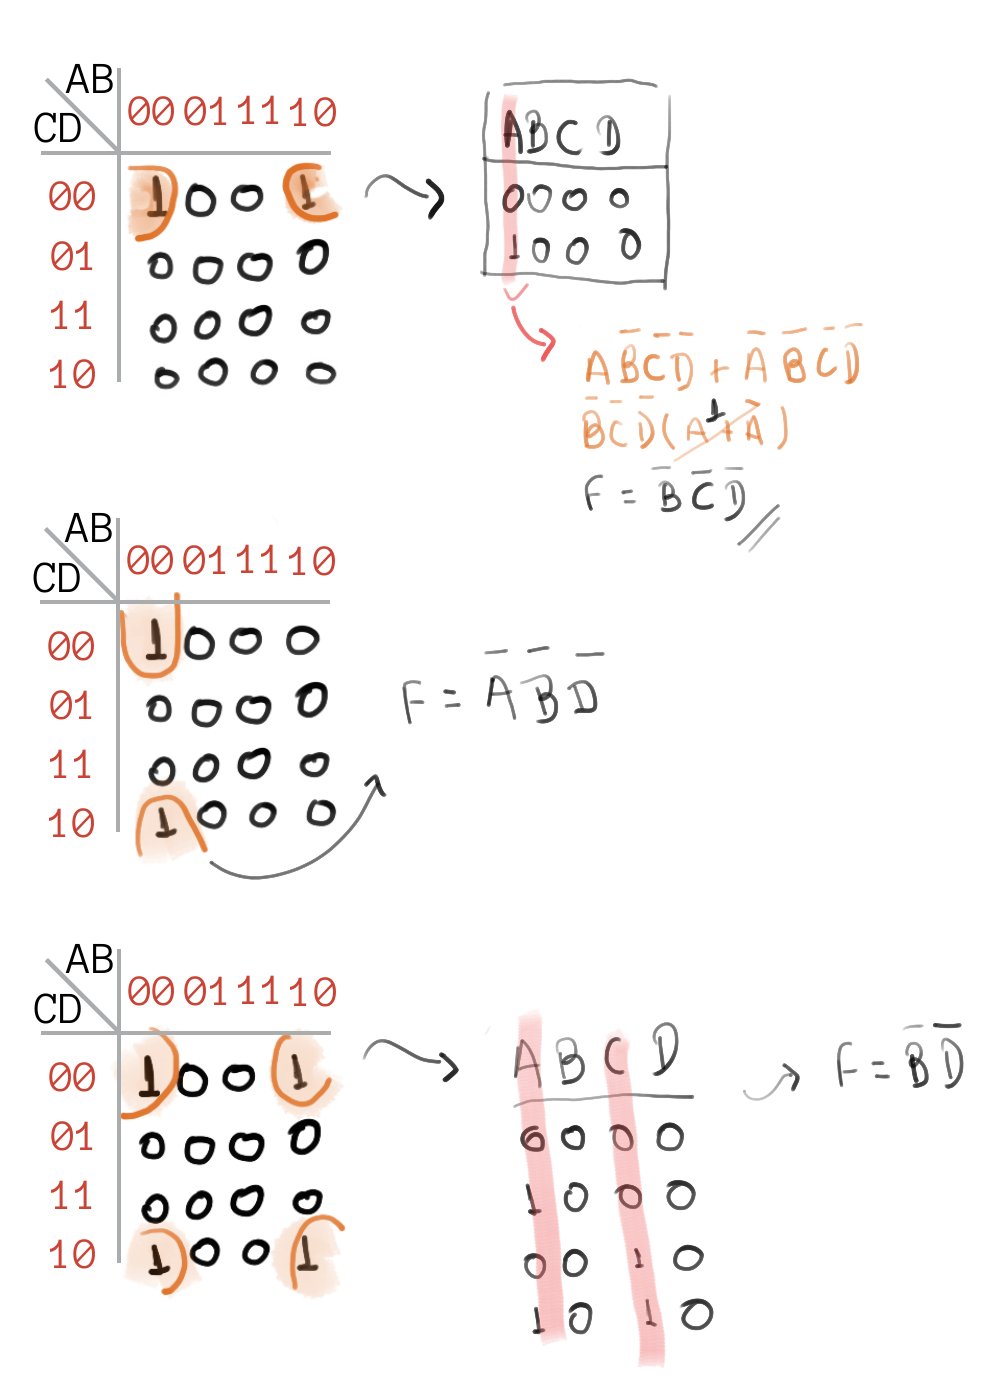 AB
CD
00 01 11 10
00 1 0 0 1
01 0 0 0 0
11 0 0 0 0
10 0 0 0 0
A B C D
0 0 0 0
1 0 0 0
AB̅C̅D̅ + A̅B̅C̅D̅
B̅C̅D̅(A+A̅) 1
F = B̅C̅D̅
AB
CD
00 01 11 10
00 1 0 0 0
01 0 0 0 0
11 0 0 0 0
10 1 0 0 0
F = A̅B̅D̅
AB
CD
00 01 11 10
00 1 0 0 1
01 0 0 0 0
11 0 0 0 0
10 1 0 0 1
A B C D
0 0 0 0
1 0 0 0
0 0 1 0
1 0 1 0
F = B̅D̅